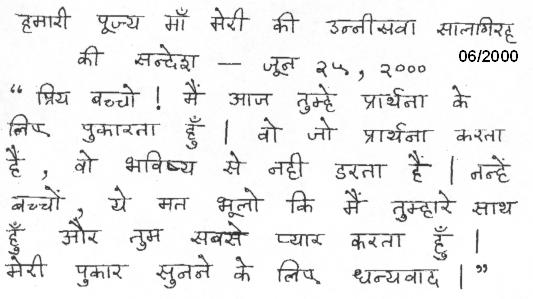 हमारी पूज्य माँ मेरी की उन्नीसवा सालगिरह
की सन्देश — जून २५, २०००
06/2000
“ प्रिय बच्चो ! मैं आज तुम्हे प्रार्थना के
लिए पुकारता हुँ | वो जो प्रार्थना करता
है, वो भविष्य से नही डरता हैं | नन्हें
बच्चों, ये मत भूलो कि मैं तुम्हारे साथ
हुँ और तुम सबसे प्यार करता हुँ |
मेरी पुकार सुनने के लिए धन्यवाद | ”